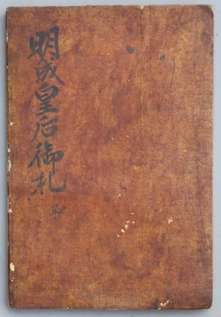 明成皇后御札